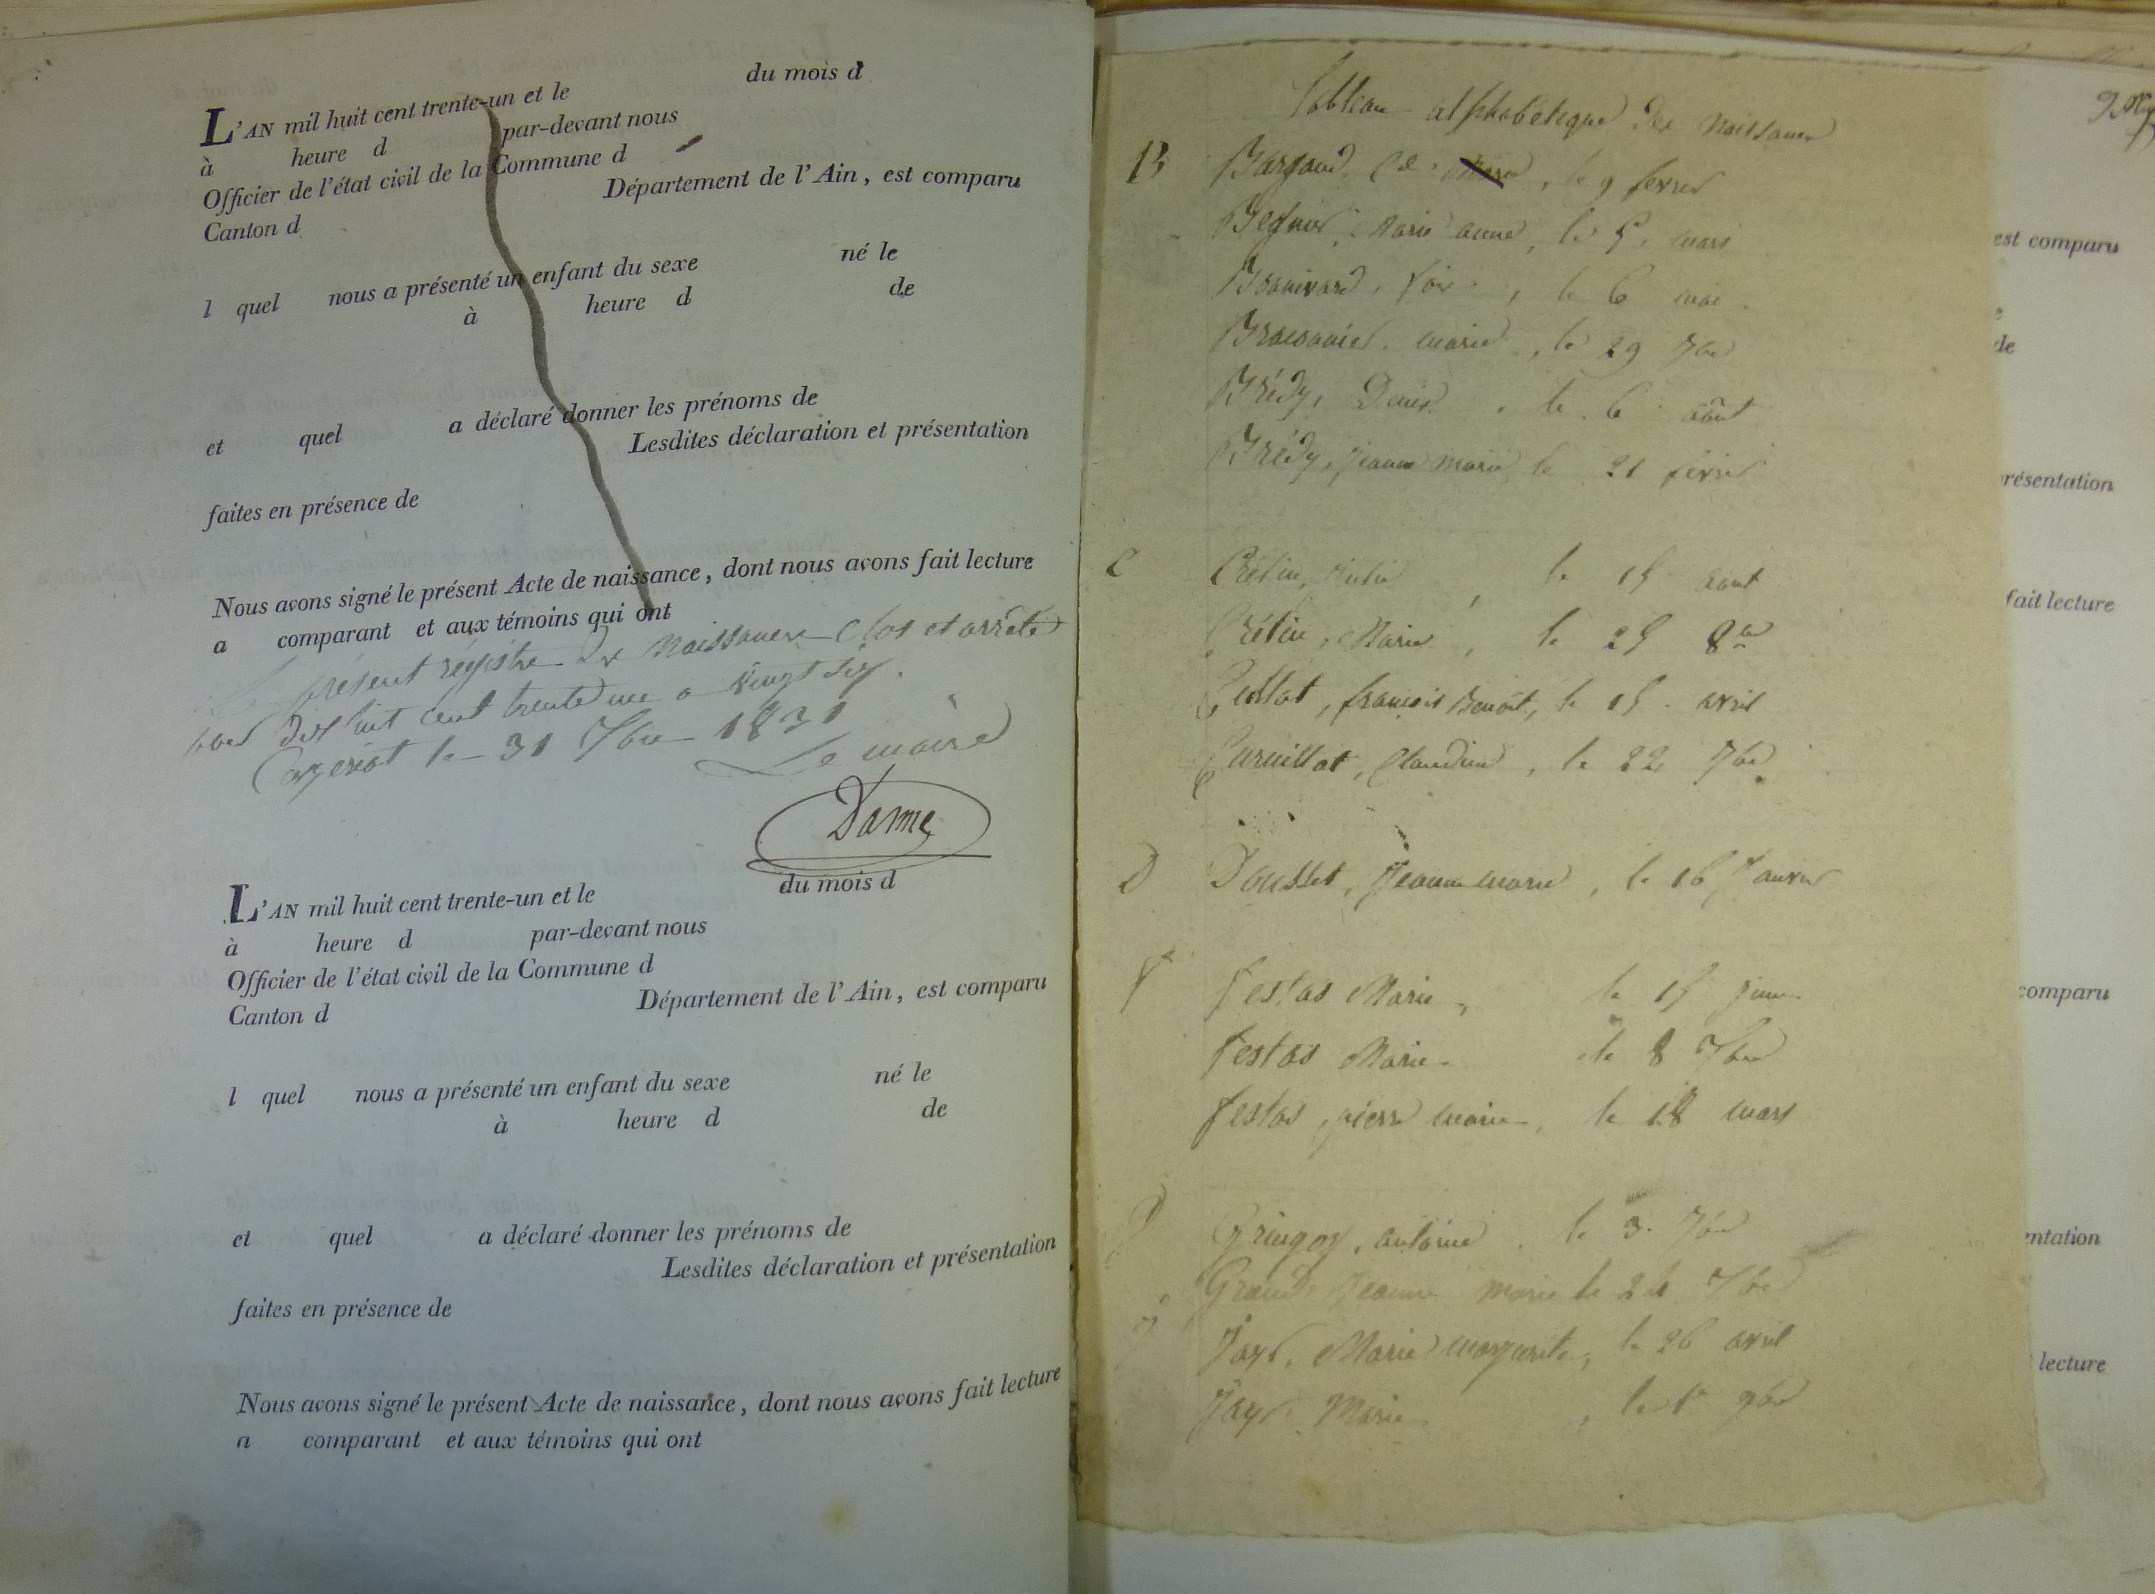 du mois d
L'AN mil huit cent trente-un et le
à heure d par-devant nous
Officier de l'état civil de la Commune d
Canton d Département de l'Ain, est comparu
l quel nous a présenté un enfant du sexe né le
à heure d de
et quel a déclaré donner les prénoms de
Lesdites déclaration et présentation
faites en présence de
Nous avons signé le présent Acte de naissance, dont nous avons fait lecture
a comparant et aux témoins qui ont
présent régistre de Naissances Clos et arrêté
dix huit cent trente une a vingt six.
le 31 Xbre 1831
Le maire
Darme
du mois d
L'AN mil huit cent trente-un et le
à heure d par-devant nous
Officier de l'état civil de la Commune d
Canton d Département de l'Ain, est comparu
l quel nous a présenté un enfant du sexe né le
à heure d de
et quel a déclaré donner les prénoms de
Lesdites déclaration et présentation
faites en présence de
Nous avons signé le présent Acte de naissance, dont nous avons fait lecture
a comparant et aux témoins qui ont
Tableau alphabétique des Naissances
B , le 9 fevrier
Marie anne, le 5 mars
, le 6 mai
marie, le 29 7bre
Brédy, Denis, le 6 août
Brédy, Jeanne marie, le 21 février
C Crétin, Julie, le 15 aout
Crétin, Marie, le 25 8bre
Cullat, françois Benoît, le 15 avril
Curnillat, Claudine, le 22 7bre
D Dousset, Jeanne marie, le 16 Janvier
F festas Marie, le 15 juin
festas Marie le 8 7bre
festas, pierre marie, le 18 mars
Gringoz, antoine, le 3 7bre
Grand, Jeanne marie le 24 7bre
J Jayr, Marie margurite, le 26 avril
Jayr Marie, le 1er 9bre
est comparu
de
résentation
fait lecture
comparu
entation
lecture